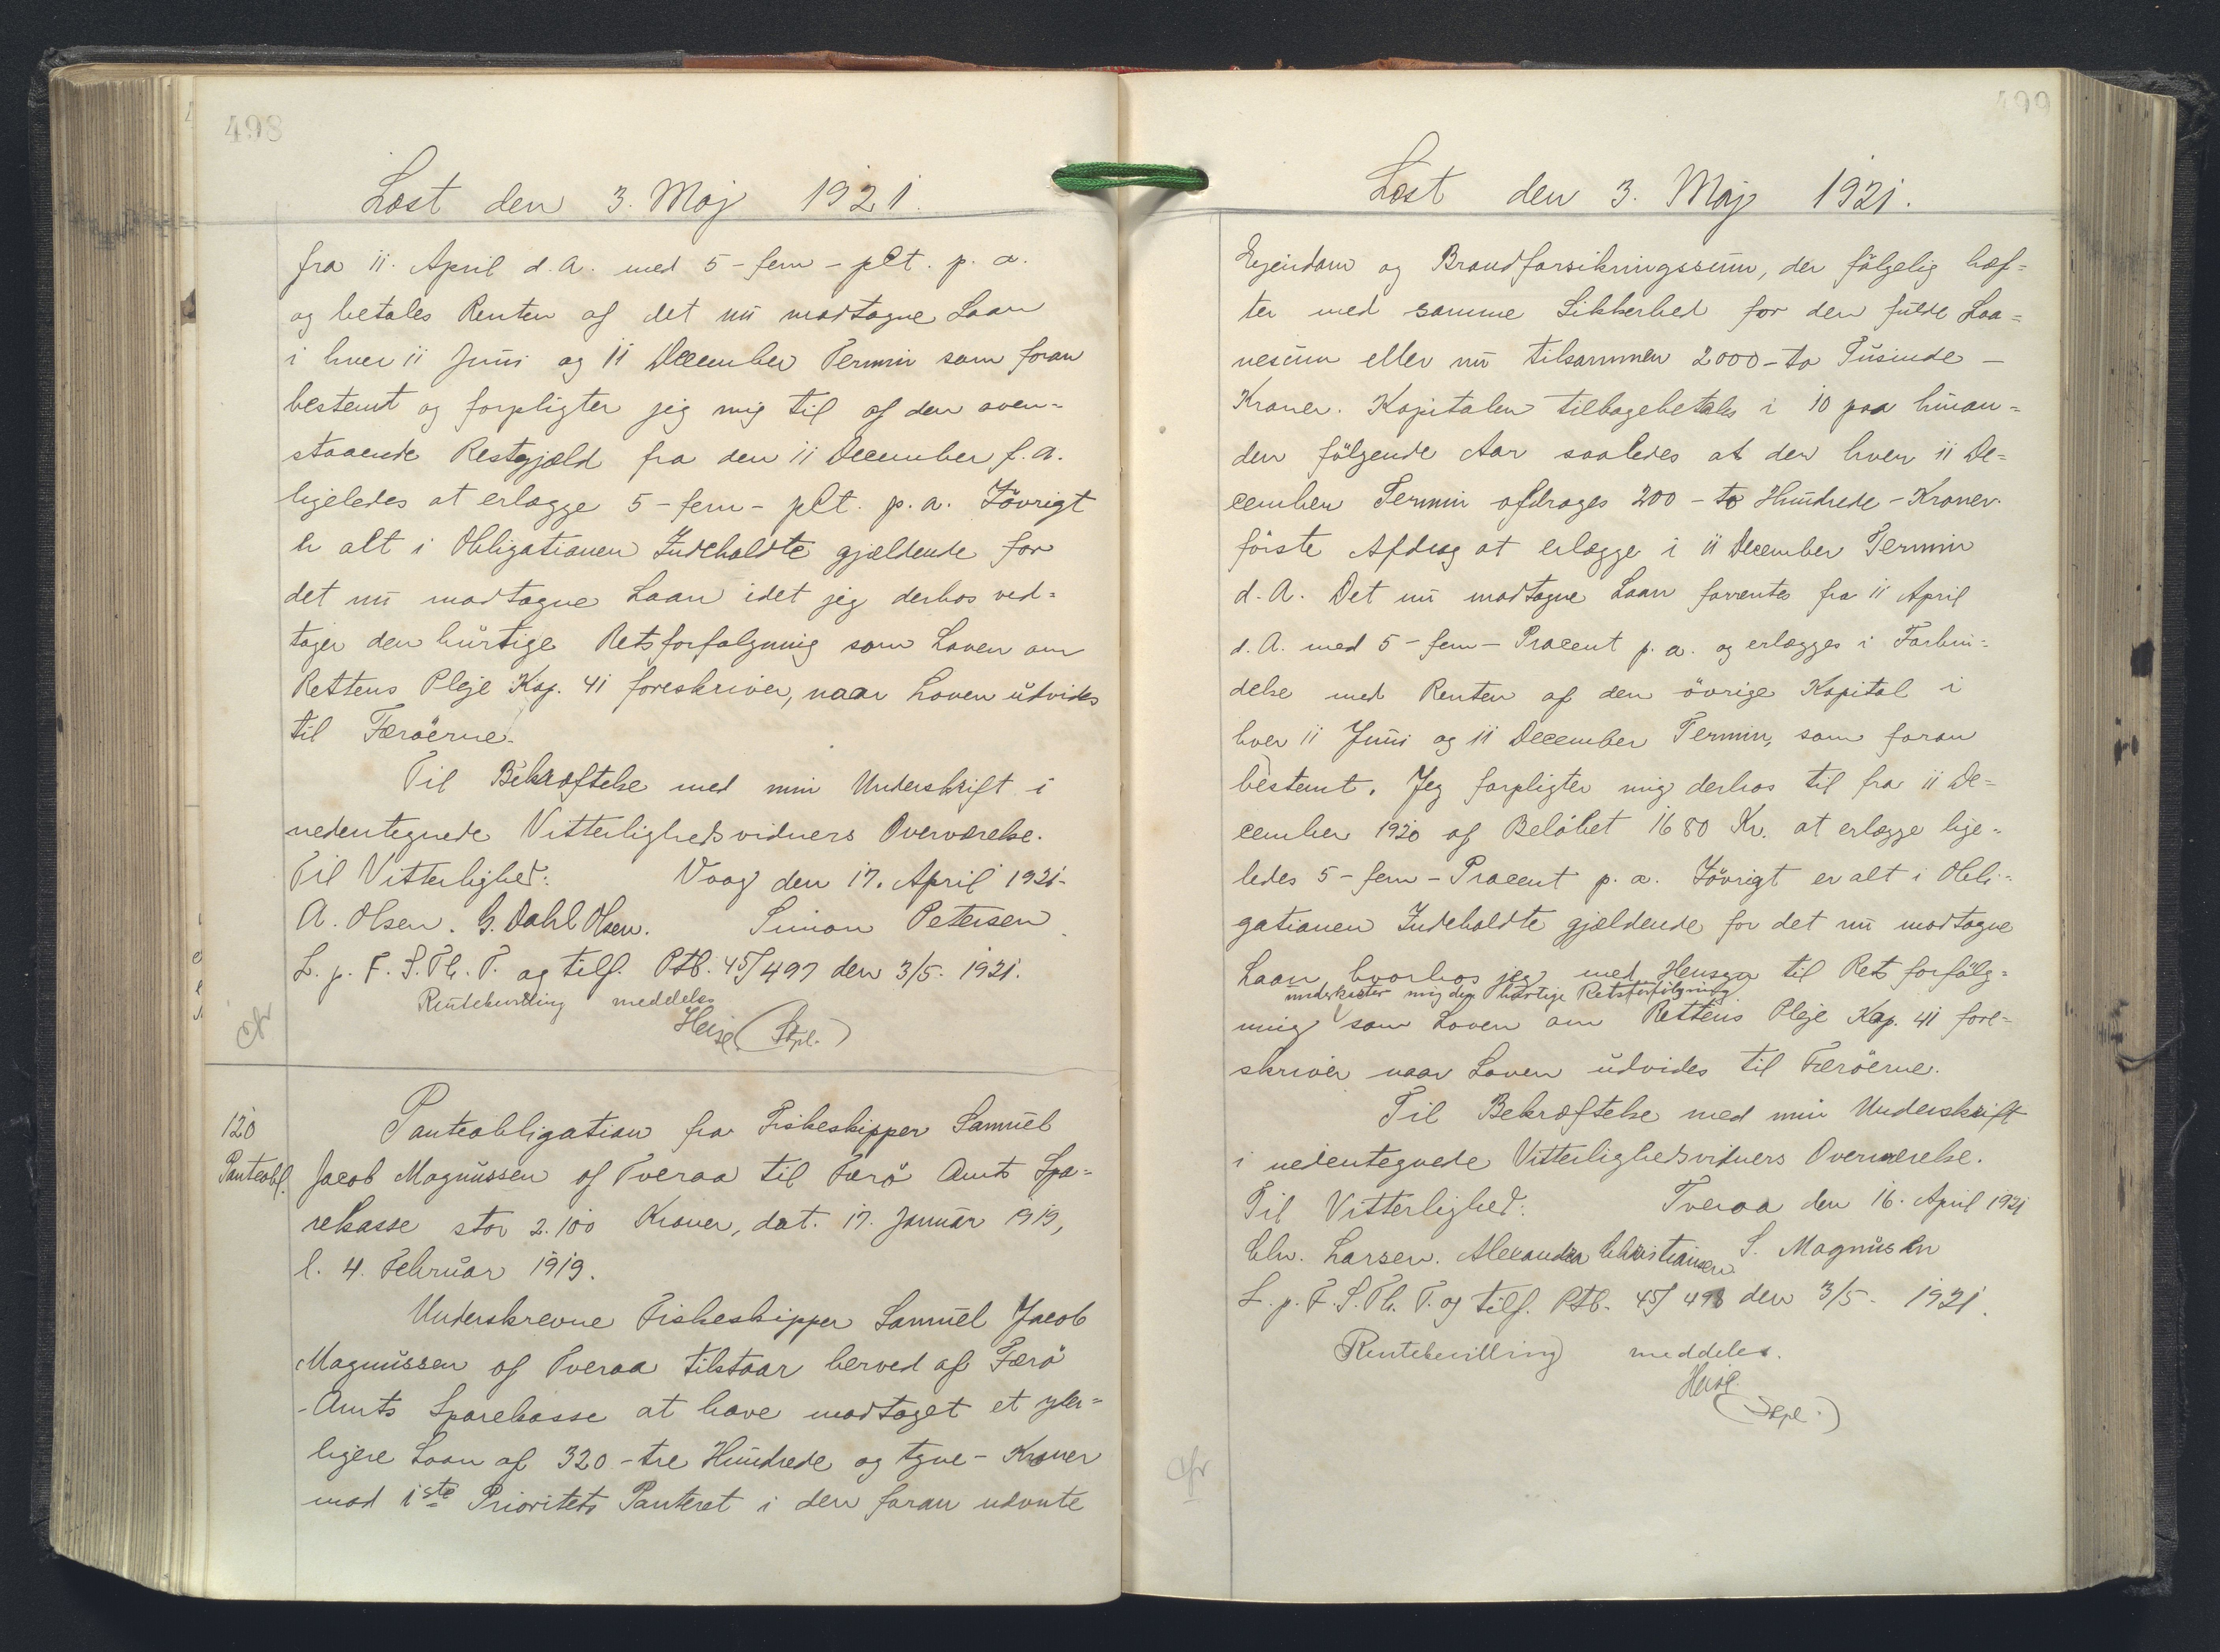 498
Læst den 3. Maj 1921.
fra 11. April d. A. med 5 - fem - pCt. p. a.
og betales Renten af det nu modtagne Laan
i hver 11 Juni og 11 December Termin som foran
bestemt og forpligter jeg mig til af den oven-
staaende Restgjæld fra den 11 December f. A.
ligeledes at erlægge 5 - fem - pCt. p. a. Iøvrigt
er alt i Obligationen Indeholdte gjældende for
det nu modtagne Laan idet jeg derhos ved-
tager den hurtige Retsforfølgning som Loven om
Rettens Pleje Kap. 41 foreskriver, naar Loven udvides
til Færøerne.
Til Bekræftelse med min Underskrift i
nedentegnede Vitterlighedsvidners Overværelse.
Til Vitterlighed: Vaag den 17. April 1921.
A. Olsen. G. Dahl Olsen. Simon Petersen.
L. p. F. S. Th. T. og tilf. Ptb. 45/497 den 3/5. 1921.
Rentebevilling meddeles
Heise (Stpl.)
cfr
120
Panteobl.
Panteobligation fra Fiskeskipper Samuel
Jacob Magnussen af Tveraa til Færø Amts Spa-
rekasse stor 2.100 Kroner, dat. 17. Januar 1919,
l. 4. Februar 1919.
Underskrevne Fiskeskipper Samuel Jacob
Magnussen af Tveraa tilstaar herved af Færø
Amts Sparekasse at have modtaget et yder-
ligere Laan af 320 - tre Hundrede og tyve - Kroner
mod 1ste Prioritets Panteret i den foran nævnte
499
Læst den 3. Maj 1921.
Ejendom og Brandforsikringssum, der følgelig hæf-
ter med samme Sikkerhed for den fulde Laa-
nesum eller nu tilsammen 2000 - to Tusinde -
Kroner. Kapitalen tilbagebetales i 10 paa hinan-
den følgende Aar saaledes at der hver 11 De-
cember Termin afdrages 200 - to Hundrede - Kroner.
første Afdrag at erlægge i 11 December Termin
d. A. Det nu modtagne Laan forrentes fra 11 April
d. A. med 5 - fem - Procent p. a. og erlægges i Forbin-
delse med Renten af den øvrige Kapital i
hver 11 Juni og 11 December Termin, som foran
bestemt. Jeg forpligter mig derhos til fra 11 De-
cember 1920 af Beløbet 1680 Kr. at erlægge lige-
ledes 5 - fem - Procent p. a. Iøvrigt er alt i Obli-
gationen Indeholdte gjældende for det nu modtagne
Laan, hvorhos jeg med Hensyn til Retsforfølg-
underkaster mig den hurtige Retsforfølgning
ning som Loven om Rettens Pleje Kap. 41 fore-
skriver naar Loven udvides til Færøerne.
Til Bekræftelse med min Underskrift
i nedentegnede Vitterlighedsvidners Overværelse.
Til Vitterlighed: Tveraa den 16. April 1921
Chr. Larsen. Alexandra Christiansen S. Magnussen
L. p. F. S. Th. T. og tilf. Ptb. 45/498 den 3/5. 1921.
Rentebevilling meddeles.
Heise
(Stpl.)
cfr